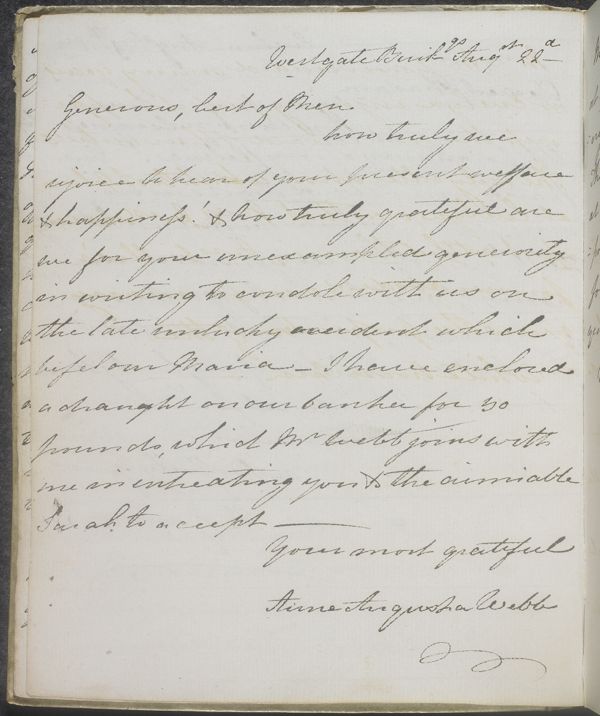 Westgate Build.gs Aug.st 22.d
Generous, best of Men
how truly we
rejoice to hear of your present welfare
& happiness! & how truly grateful are
we for your unexampled generosity
in writing to condole with us on
the late unlucky accident which
befel our Maria — I have enclosed
a draught on our banker for 30
pounds, which Mr Webb joins with
me in entreating you & the aimiable
Sarah to accept —
Your most grateful
Anne Augusta Webb